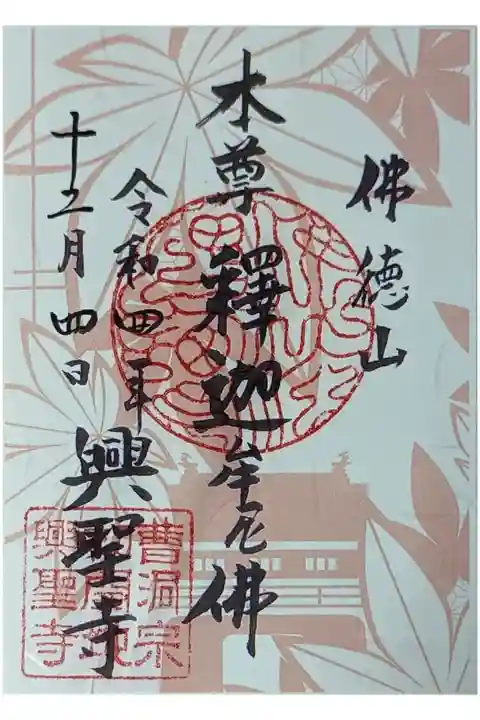 佛徳山
本尊 釋迦牟尼佛
令和四年
十二月四日
興聖寺
曹洞宗
興聖寺